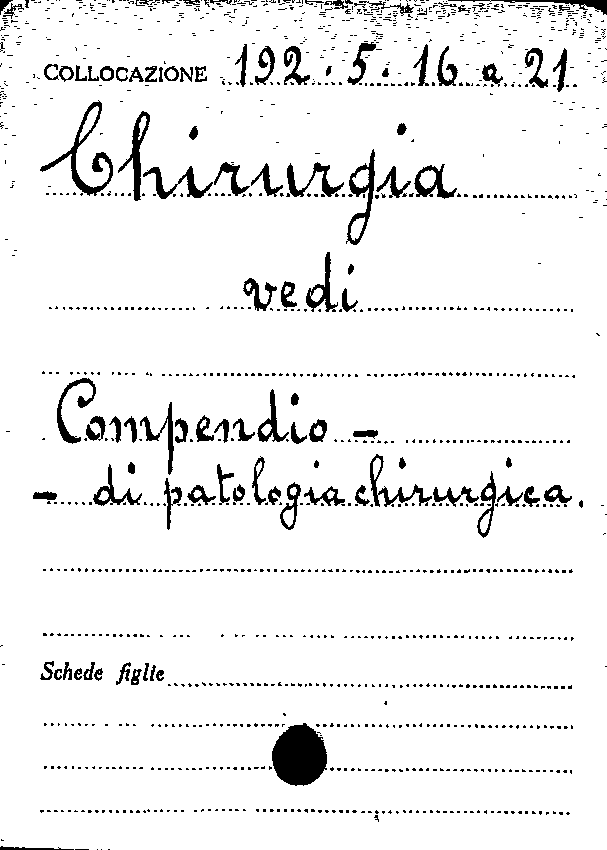 COLLOCAZIONE 192.5.16 a 21
Chirurgia
vedi
Compendio -
- di patologia chirurgica.
Schede figlie